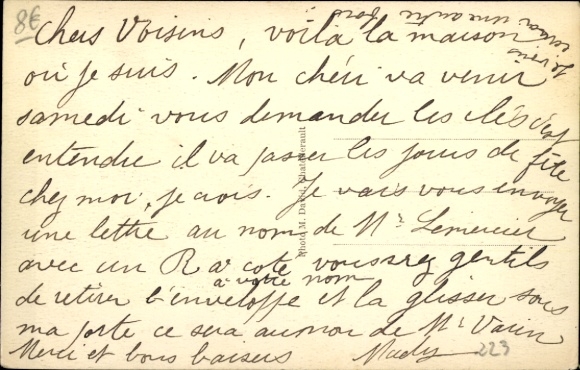 8€
Chers Voisins, voilà la maison
où je suis. Mon chéri va venir
samedi vous demander les clés c'est
entendu il va passer les jours de fête
chez moi, je crois. Je vais vous envoyer
une lettre au nom de Mr Lemercier
avec un R a coté vous srez gentils
a votre nom
de retirer l'enveloppe et la glisser sous
ma porte ce sera au nom de Mr Varin
Merci et bons baisers Mady 223
Je vais
une autre fois
Photo M. David, Chatellerault